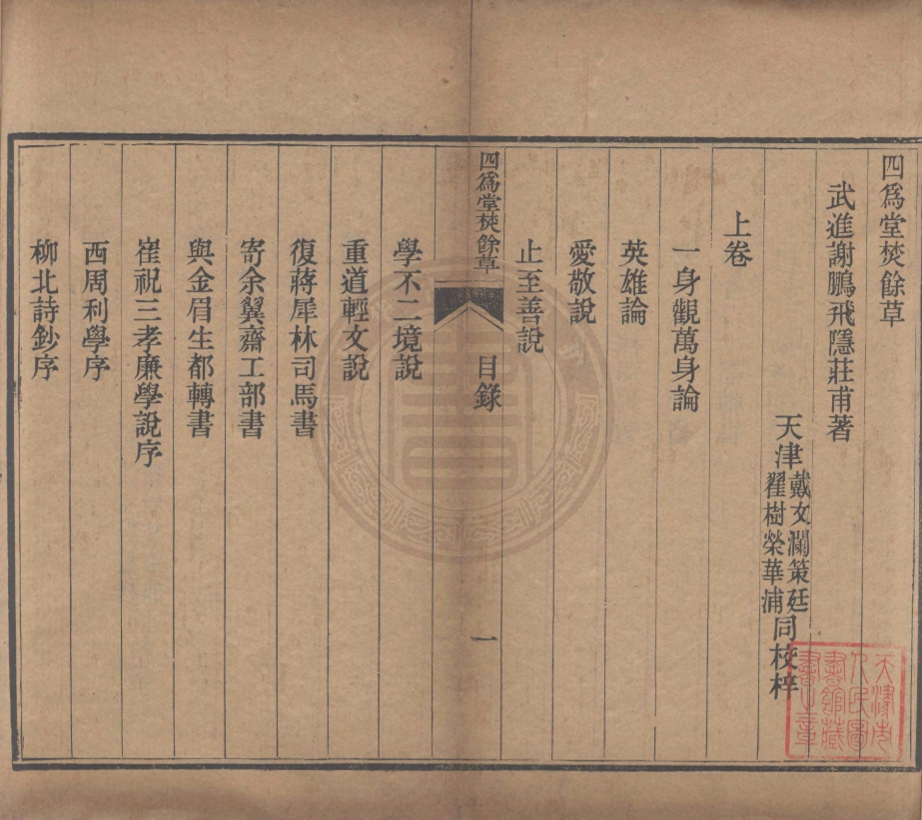 四爲堂焚餘草
武進謝鵬飛隱莊甫著
天津戴文瀾策廷翟樹榮華浦同校梓
上卷
一身觀萬身論
英雄論
愛敬說
止至善說
四爲堂焚餘草 目錄 一
學不二境說
重道輕文說
復蔣犀林司馬書
寄余翼齋工部書
與金眉生都轉書
崔祝三孝廉學說序
西周利學序
柳北詩鈔序
天津市人民圖書館藏書之章